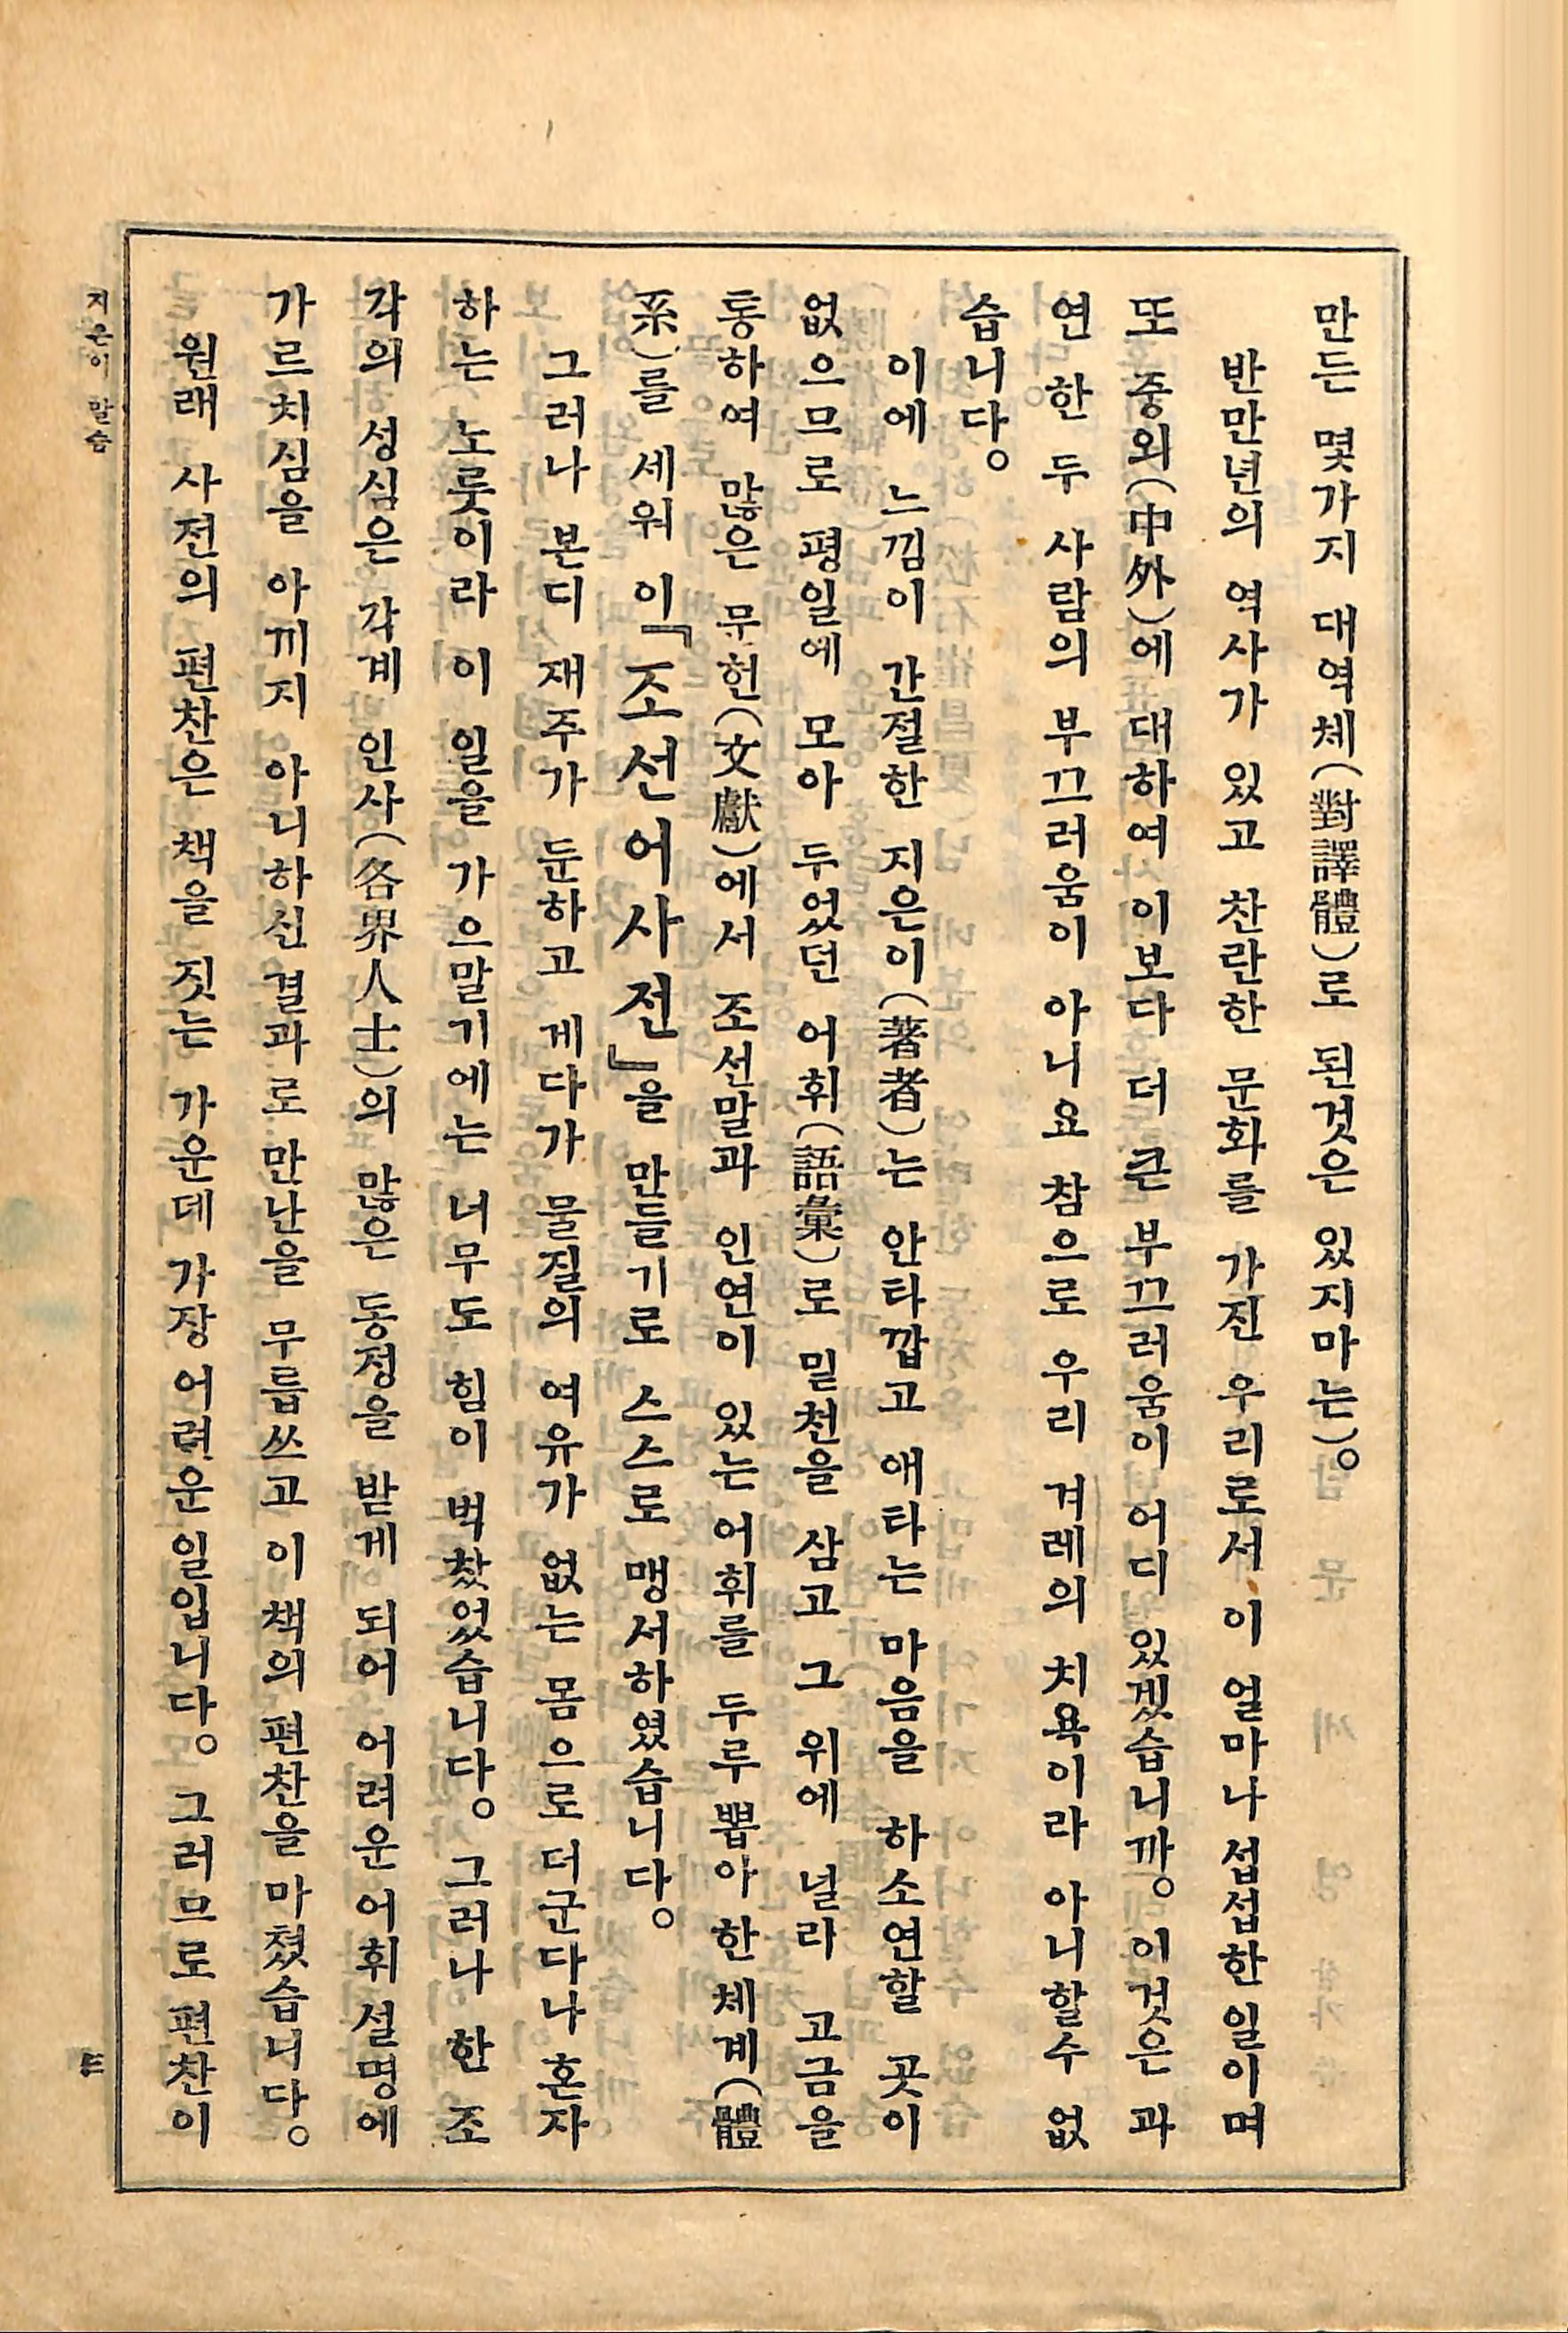 만든 몇가지 대역체(對譯體)로 된것은 있지마는)。
반만년의 역사가 있고 찬란한 문화를 가진 우리로서 이 얼마나 섭섭한 일이며
또 중외(中外)에 대하여 이보다 더 큰 부끄러움이 어디 있겠습니까。 이것은 과
연 한 두 사람의 부끄러움이 아니요 참으로 우리 겨레의 치욕이라 아니할수 없
습니다。
이에 느낌이 간절한 지은이(著者)는 안타깝고 애타는 마음을 하소연할 곳이
없으므로 평일에 모아 두었던 어휘(語彙)로 밑천을 삼고 그 위에 널라 고금을
통하여 많은 무헌(文獻)에서 조선말과 인연이 있는 어휘를 두루 뽑아 한 체계(體
系)를 세워 이『조선어사전』을 만들기로 스스로 맹서하였습니다。
그러나 본디 재주가 둔하고 게다가 물질의 여유가 없는 몸으로 더군다나 혼자
하는 노릇이라 이 일을 가으말기에는 너무도 힘이 벅찼었습니다。 그러나 한 조
각의 성심은 각계 인사(各界人士)의 많은 동정을 받게 되어 어려운 어휘 설명에
가르치심을 아끼지 아니하신 결과로 만난을 무릅쓰고 이 책의 편찬을 마쳤습니다。
원래 사전의 편찬은 책을 짓는 가운데 가장 어려운 일입니다。 그러므로 편찬이
지은이 말슴
三